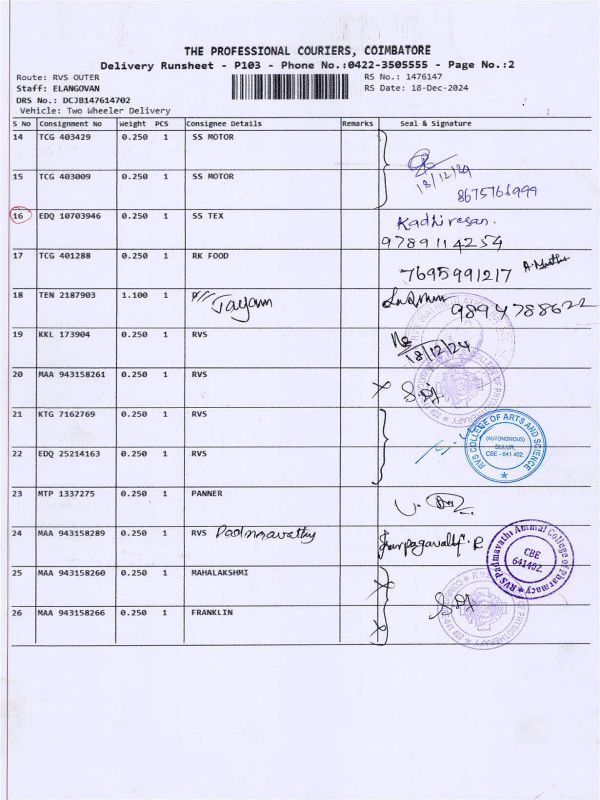 THE PROFESSIONAL COURIERS, COIMBATORE
Delivery Runsheet - P103 - Phone No.:0422-3505555 - Page No.:2
Route: RVS OUTER
RS No.: 1476147
Staff: ELANGOVAN
RS Date: 18-Dec-2024
DRS No.: DCJB147614702
Vehicle: Two Wheeler Delivery
S No Consignment No Weight PCS Consignee Details Remarks Seal & Signature
14 TCG 403429 0.250 1 SS MOTOR
18/12/24
15 TCG 403009 0.250 1 SS MOTOR
8675761999
16 EDQ 10703946 0.250 1 SS TEX Kadhiresan.
9789114254
17 TCG 401288 0.250 1 RK FOOD
7695991217
18 TEN 2187903 1.100 1 Jayam
9894788622
19 KKL 173904 0.250 1 RVS
18/12/24
20 MAA 943158261 0.250 1 RVS
21 KTG 7162769 0.250 1 RVS
RVS COLLEGE OF ARTS AND SCIENCE
(AUTONOMOUS)
SULUR,
CBE - 641 402.
22 EDQ 25214163 0.250 1 RVS
23 MTP 1337275 0.250 1 PANNER
24 MAA 943158289 0.250 1 RVS Padmavathy
RVS Padmavathi Ammal College of Pharmacy
CBE
641402
25 MAA 943158260 0.250 1 MAHALAKSHMI
26 MAA 943158266 0.250 1 FRANKLIN